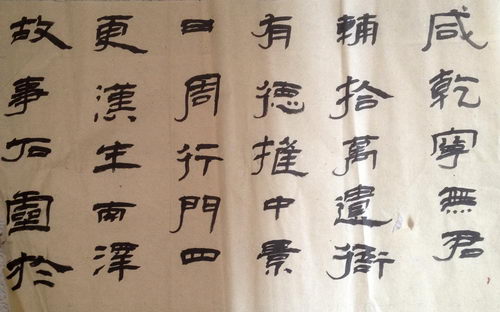 咸乾寧無君
輔拾萬衙
有德推中景
曰周行門四
更漢生南澤
故事石靈於